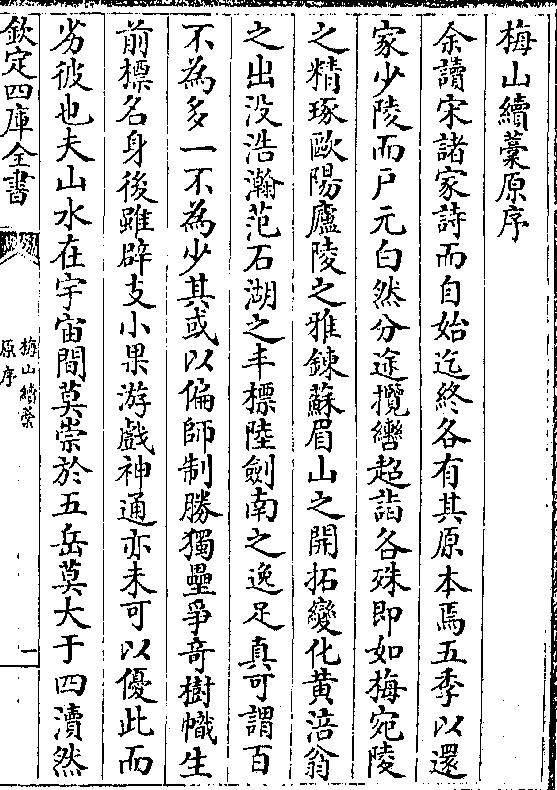 梅山續藳原序
余讀宋諸家詩而自始迄終各有其原本焉五季以還
家少陵而戸元白然分途攬轡超詣各殊即如梅宛陵
之精琢歐陽廬陵之雅鍊蘇眉山之開拓變化黄涪翁
之出没浩瀚范石湖之丰標陸劍南之逸足真可謂百
不為多一不為少其或以偏師制勝獨壘爭奇樹幟生
前標名身後雖辟支小果游戲神通亦未可以優此而
劣彼也夫山水在宇宙間莫崇於五岳莫大于四瀆然
欽定四庫全書
梅山續藳
原序
一